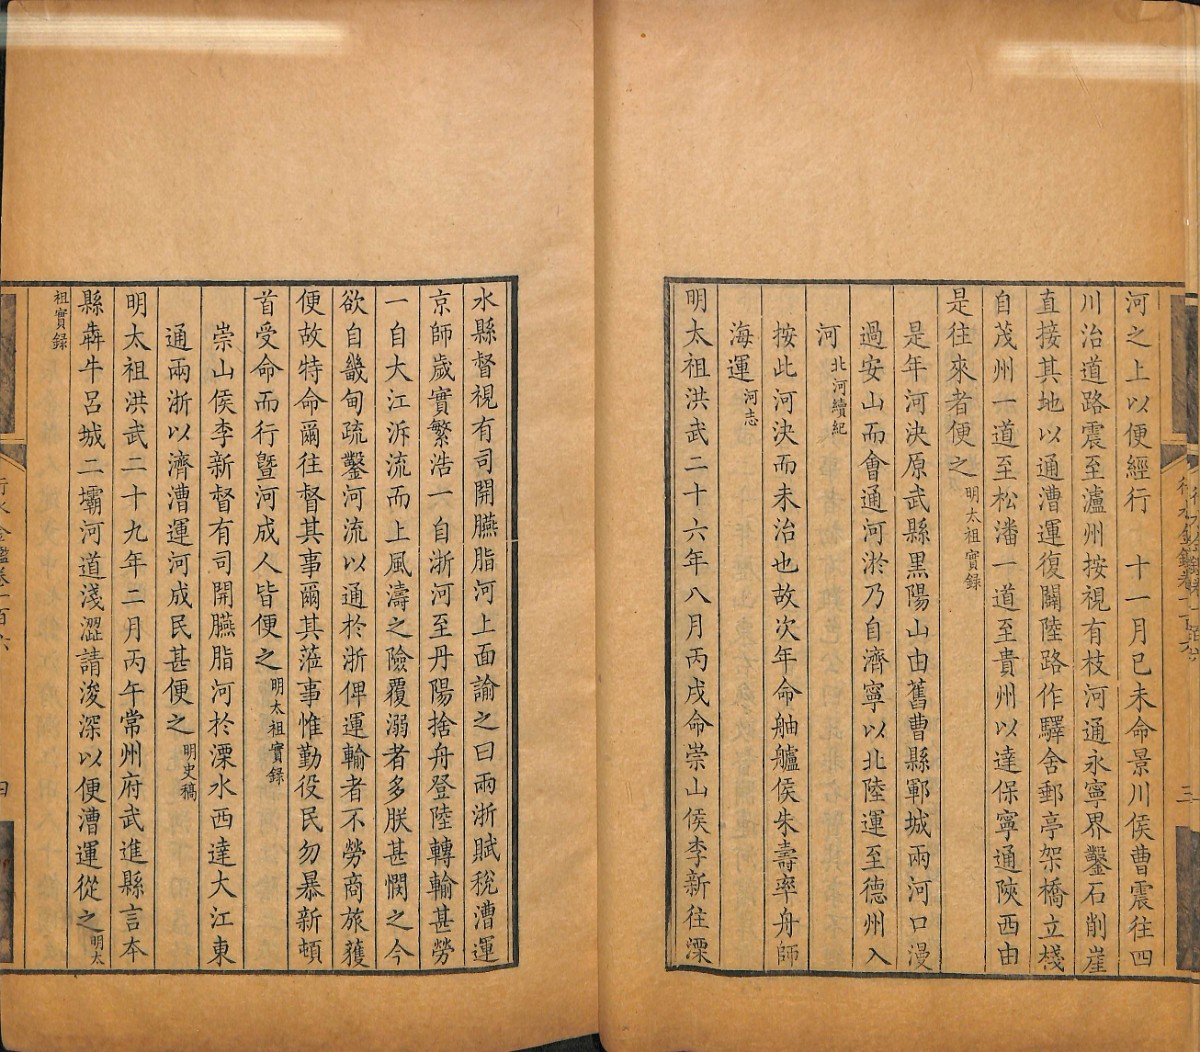 河之上以便經行　十一月已未命景川侯曹震往四
川治道路震至瀘州按視有枝河通永寧界鑿石削崖
直接其地以通漕運復闢陸路作驛舍郵亭架橋立棧
自茂州一道至松潘一道至貴州以達保寧通陝西由
是往來者便之明太祖實録
是年河決原武縣黑陽山由舊曹縣鄆城兩河口漫
過安山而會通河淤乃自濟寧以北陸運至德州入
河北河續紀
按此河決而未治也故次年命舳艫侯朱壽率舟師
海運河志
明太祖洪武二十六年八月丙戌命崇山侯李新往溧
水縣督視有司開臙脂河上面諭之曰兩浙賦稅漕運
京師歲實繁浩一自浙河至丹陽捨舟登陸轉輸甚勞
一自大江泝流而上風濤之險覆溺者多朕甚憫之今
欲自畿甸疏鑿河流以通於浙俾運輸者不勞商旅獲
便故特命爾往督其事爾其蒞事惟勤役民勿暴新頓
首受命而行曁河成人皆便之明太祖實録
崇山侯李新督有司開臙脂河於溧水西達大江東
通兩浙以濟漕運河成民甚便之明史稿
明太祖洪武二十九年二月丙午常州府武進縣言本
縣犇牛呂城二壩河道淺澀請浚深以便漕運從之明太
祖實録